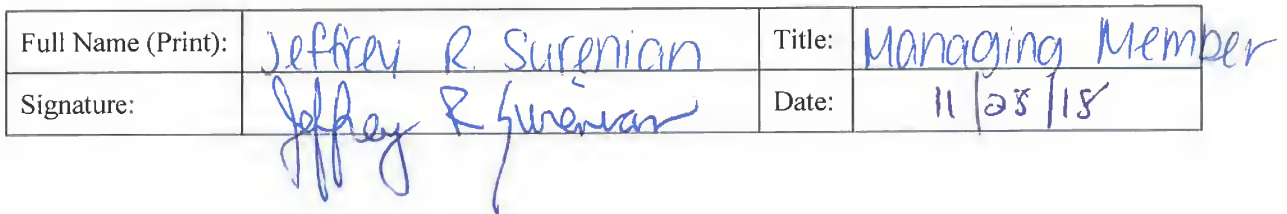 Full Name (Print): Jeffrey R. Surenian Title: Managing Member
Signature: Jeffrey R Surenian Date: 11/28/18